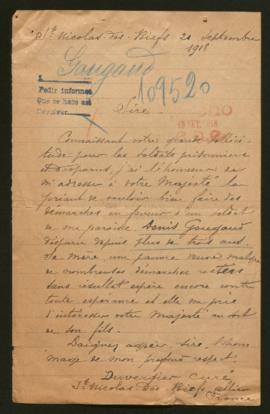 St Nicolas des Biefs 21 Septembre
1918
Gougaud
109520
Pedir informes
Que se haga asi
Sire
Connaissant votre grande sollici-
tude pour les soldats prisonniers
et disparus, j'ai l'honneur de
m'adresser à votre Majesté la
priant de vouloir bien faire des
démarches en faveur d'un soldat
de ma paroisse Denis Gougaud
disparu depuis plus de trois ans.
Sa mère, une pauvre veuve malgré
de nombreuses démarches restées
sans résultat espère encore contre
toute espérance et elle me prie
d'intéresser votre Majesté au sort
de son fils.
Daignez agréer, Sire, l'hom
mage de mon profond respect.
Duvergier curé
St Nicolas des Biefs, Allier
France